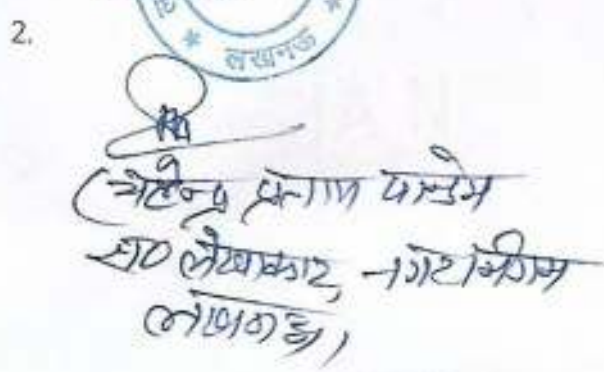 2.
* लखनऊ *
प्रताप पाण्डेय
स0 लेखाकार, नगर निगम
लखनऊ।